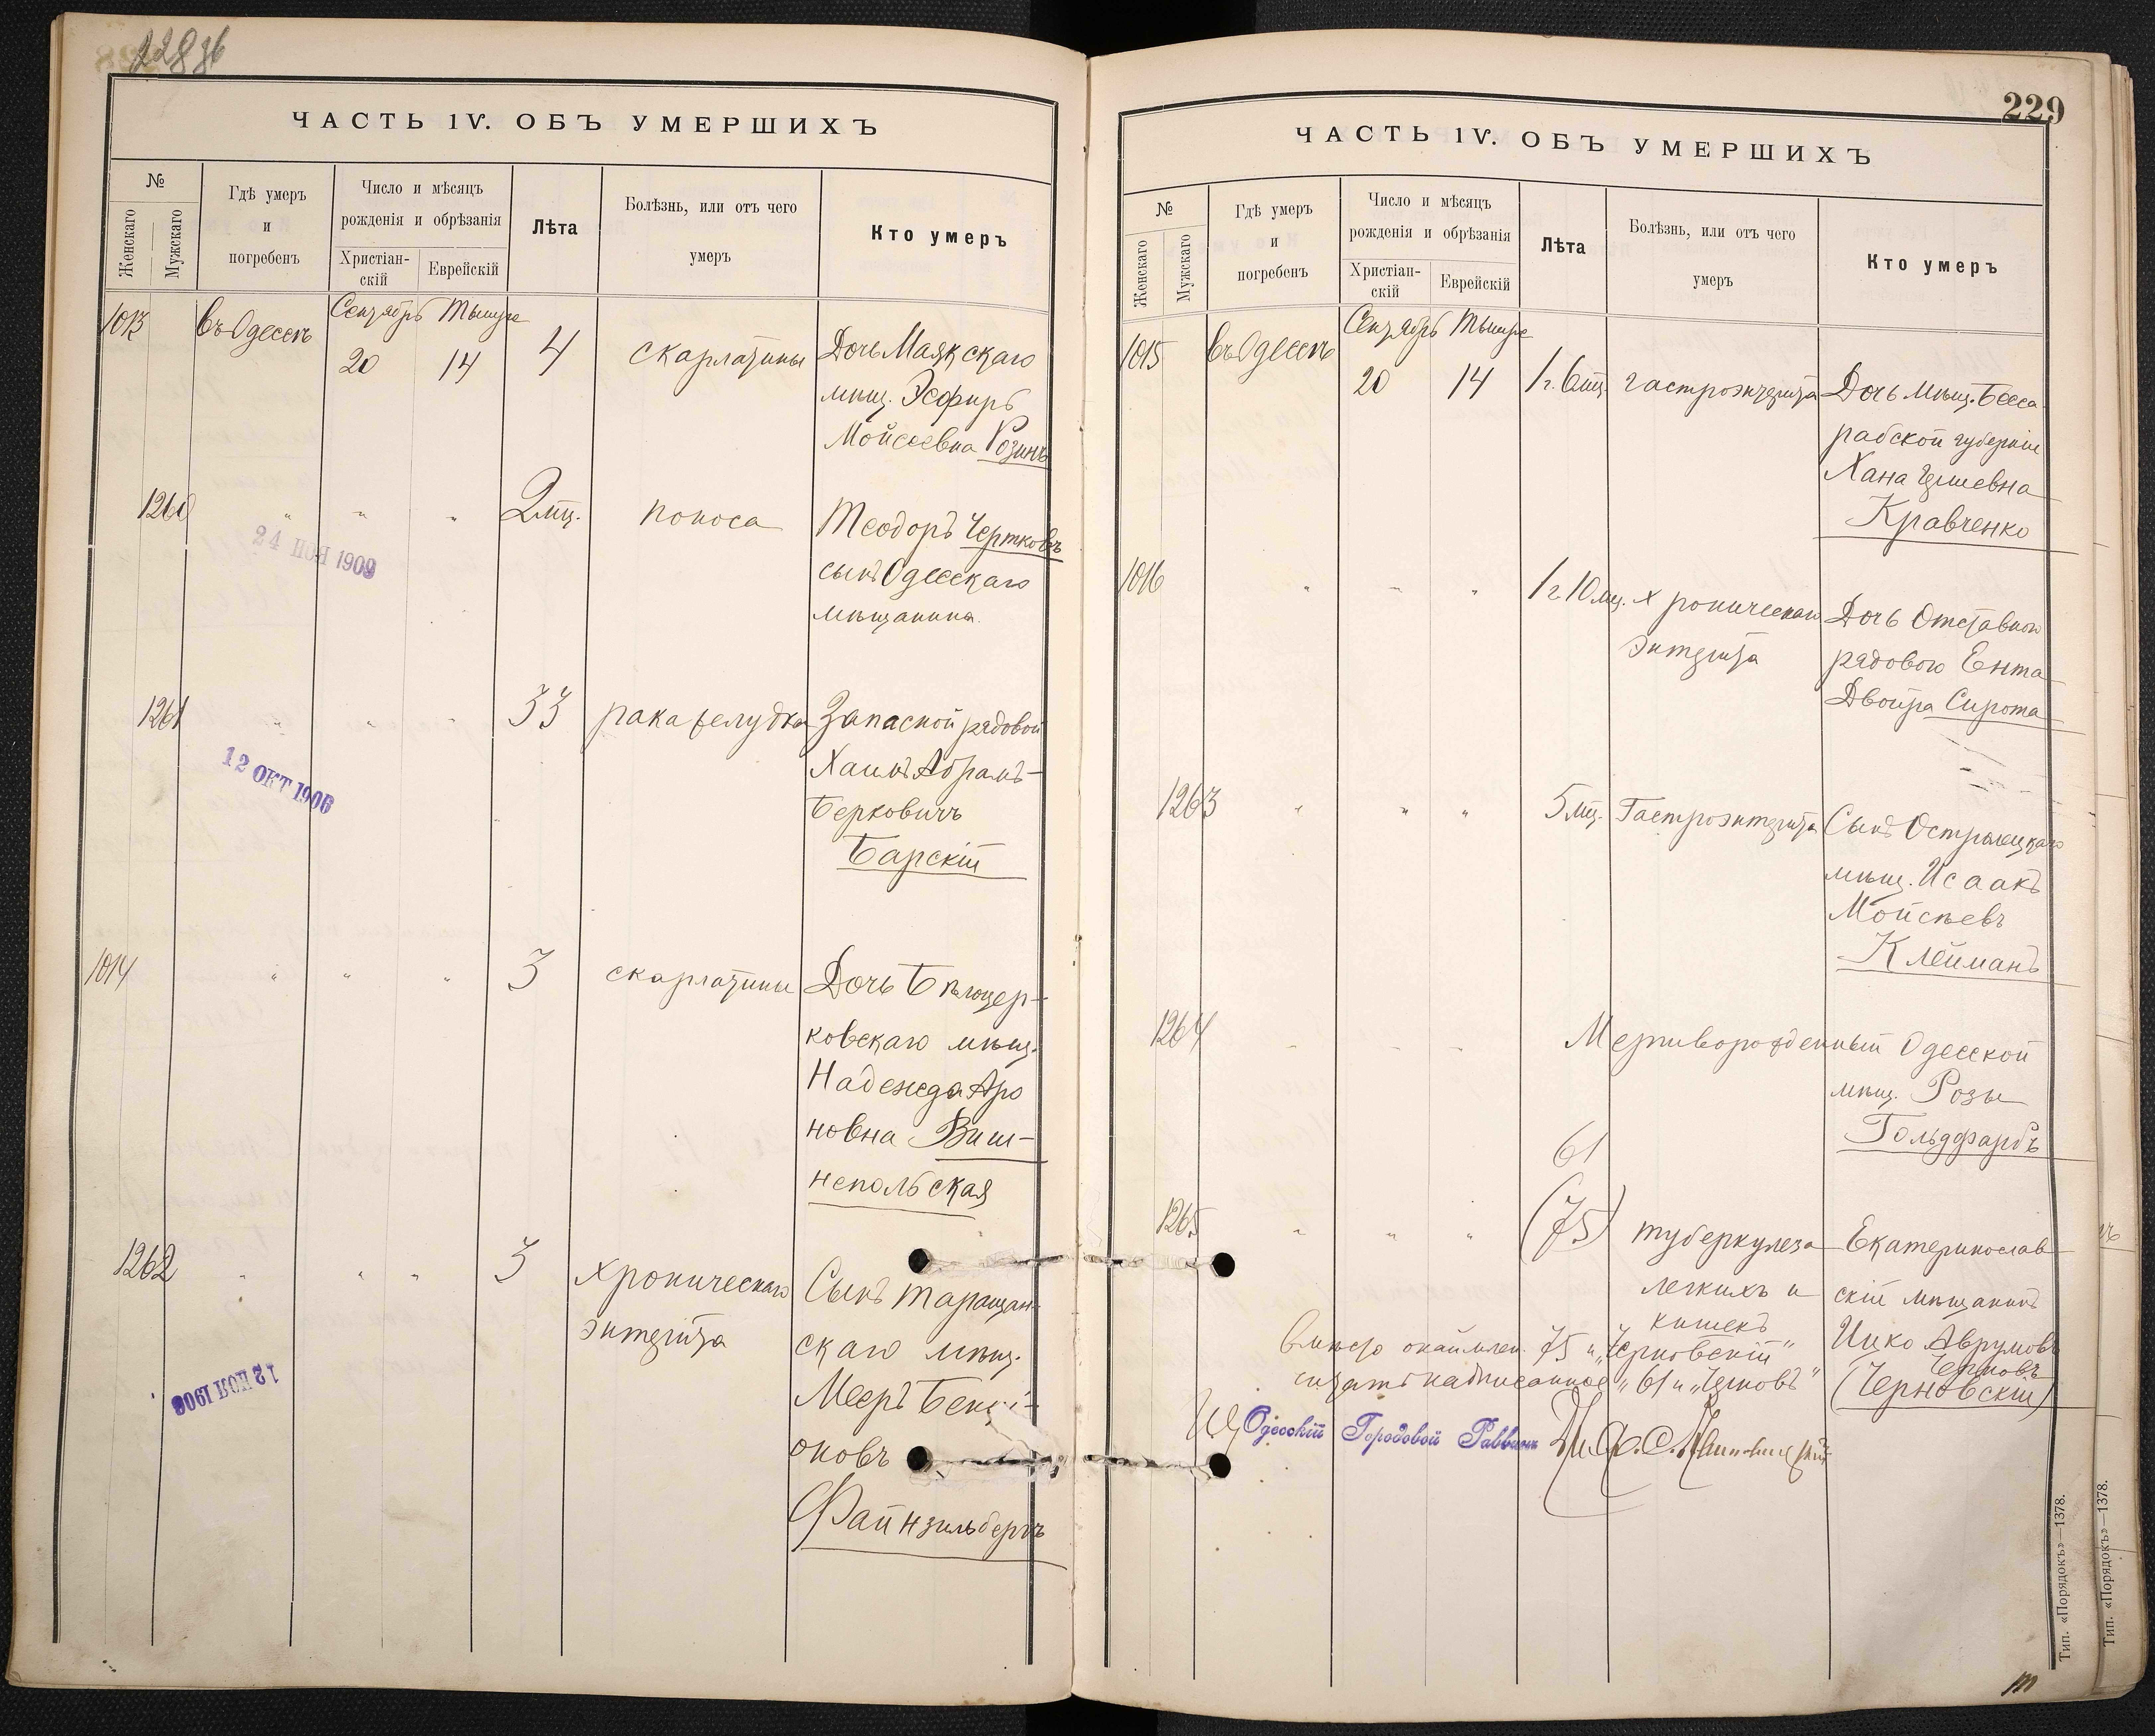 228 об
ЧАСТЬ IV. ОБЪ УМЕРШИХЪ
№
Женскаго
Мужскаго
Гдѣ умеръ
и
погребенъ
Число и мѣсяцъ
рожденія и обрѣзанія
Христіан-
скій
Еврейскій
Лѣта
Болѣзнь, или отъ чего
умеръ
Кто умеръ
1013
въ Одессѣ
Сентябрь Тышре
20 14
4
скарлатины
Дочь Маякскаго
мѣщ. Эсфирь
Мойсеевна Розинъ
1260 " " "
2 мц.
поноса
Теодоръ Чертковъ
сынъ Одесскаго
мѣщанина
24 НОЯ 1909
1261 " " "
33
рака желудка
Запасной рядовой
Хаимъ Абрамъ-
Берковичъ
Барскій
12 ОКТ 1906
1014 " " "
3
скарлатины
Дочь Бѣлоцер-
ковскаго мѣщ.
Надежда Аро
новна Виш-
непольская
1262 " " "
3
хроническаго
энтерита
Сынъ Таращан-
скаго мѣщ.
Мееръ Бенці-
оновъ
Файнзильбергъ
12 НОЯ 1908
229
ЧАСТЬ IV. ОБЪ УМЕРШИХЪ
№
Женскаго
Мужскаго
Гдѣ умеръ
и
погребенъ
Число и мѣсяцъ
рожденія и обрѣзанія
Христіан-
скій
Еврейскій
Лѣта
Болѣзнь, или отъ чего
умеръ
Кто умеръ
1015
въ Одессѣ
Сентябрь Тышре
20 14
1 г. 6 мц.
гастроэнтерита
Дочь мѣщ. Бесса-
рабской губерніи
Хана
Кравченко
1016 " " "
1 г. 10 мц.
хроническаго
энтерита
Дочь Отставного
рядового Ента
Двойра Сирота
1263 " " "
5 мц.
Гастроэнтерита
Сынъ
мѣщ. Исаакъ
Мойсѣевъ
Клейманъ
1264 " " "
Мертворожденный Одесской
мѣщ. Розы
Гольдфарбъ
61
1265 " " "
(75)
туберкулеза
легкихъ и
кишекъ
Екатеринослав
скій мѣщанинъ
Ицко Аврумовъ
Черновъ
(Черновскій)
вмѣсто окаймлен. 75 и „Черновскій"
считать надписанное „61 и „Черновъ"
Одесскій Городовой Раввинъ
Тип. «Порядокъ»—1378.
Тип. «Порядокъ»—1378.